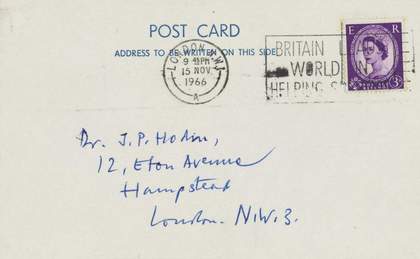 POST CARD
ADDRESS TO BE WRITTEN ON THIS SIDE
E R
LONDON
9 PM
15 NOV
1966
A
BRITAIN
WORLD IN
HELPING
3D
Dr. J.P. Hodin,
12, Eton Avenue
Hampstead
London. N.W.3.